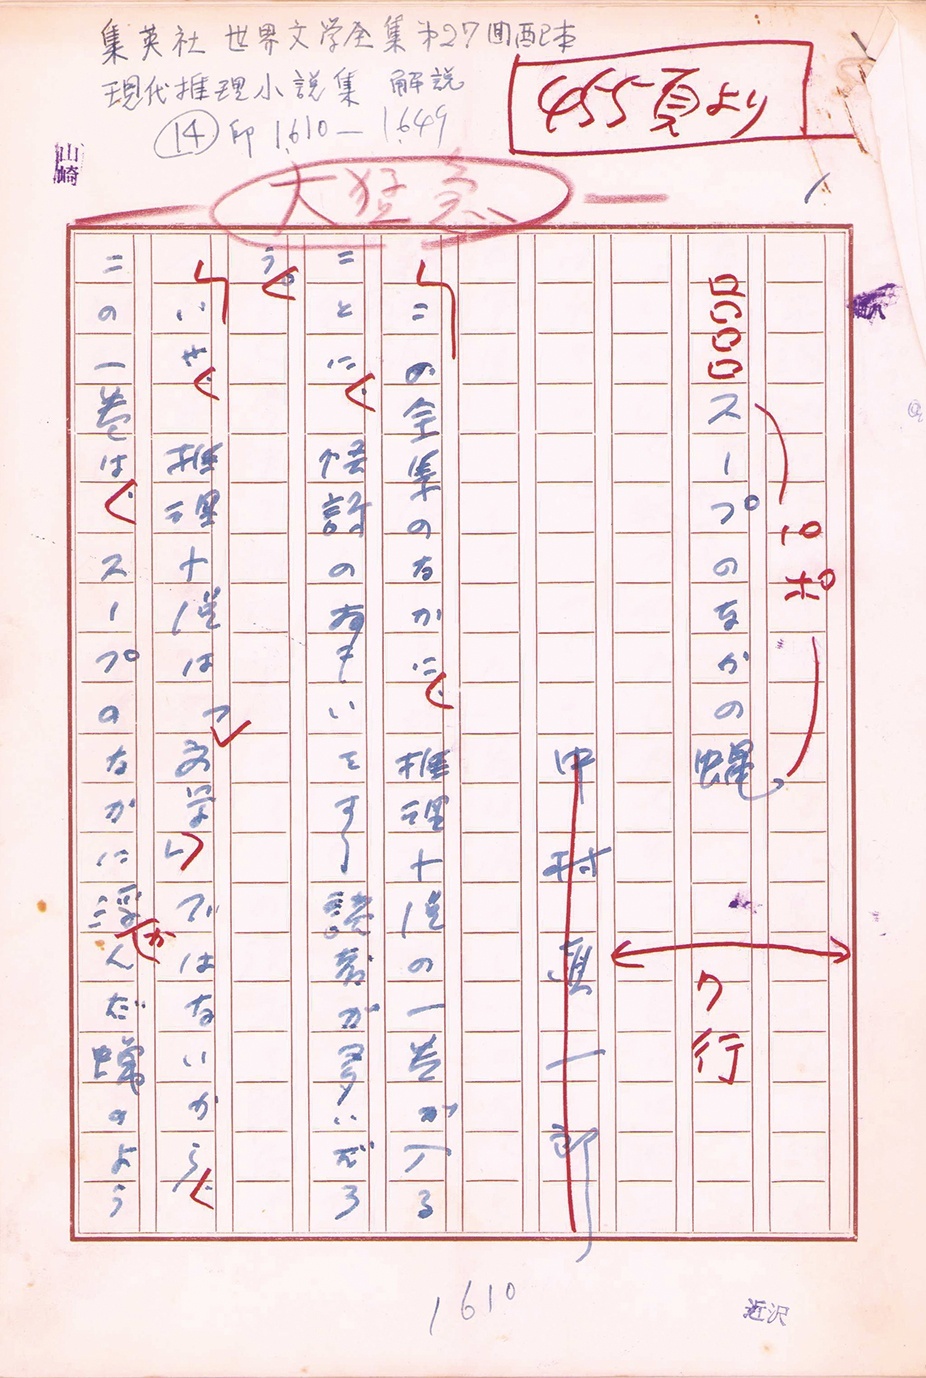 集英社 世界文学全集 オ27回配本
現代推理小説集 解説
⑭ 印 1.610 — 1.649
455頁より
山崎
大猛急
スープのなかの蠅
パポ
7行
中村眞一郎
この全集のなかに、推理小説の一巻が入る
ことに、怪訝のおもいをする読者が多いだろ
う。
いや、推理小説は「文学」ではないから、
この一巻は、スープのなかに浮かんだ蠅のよう
1610
近沢